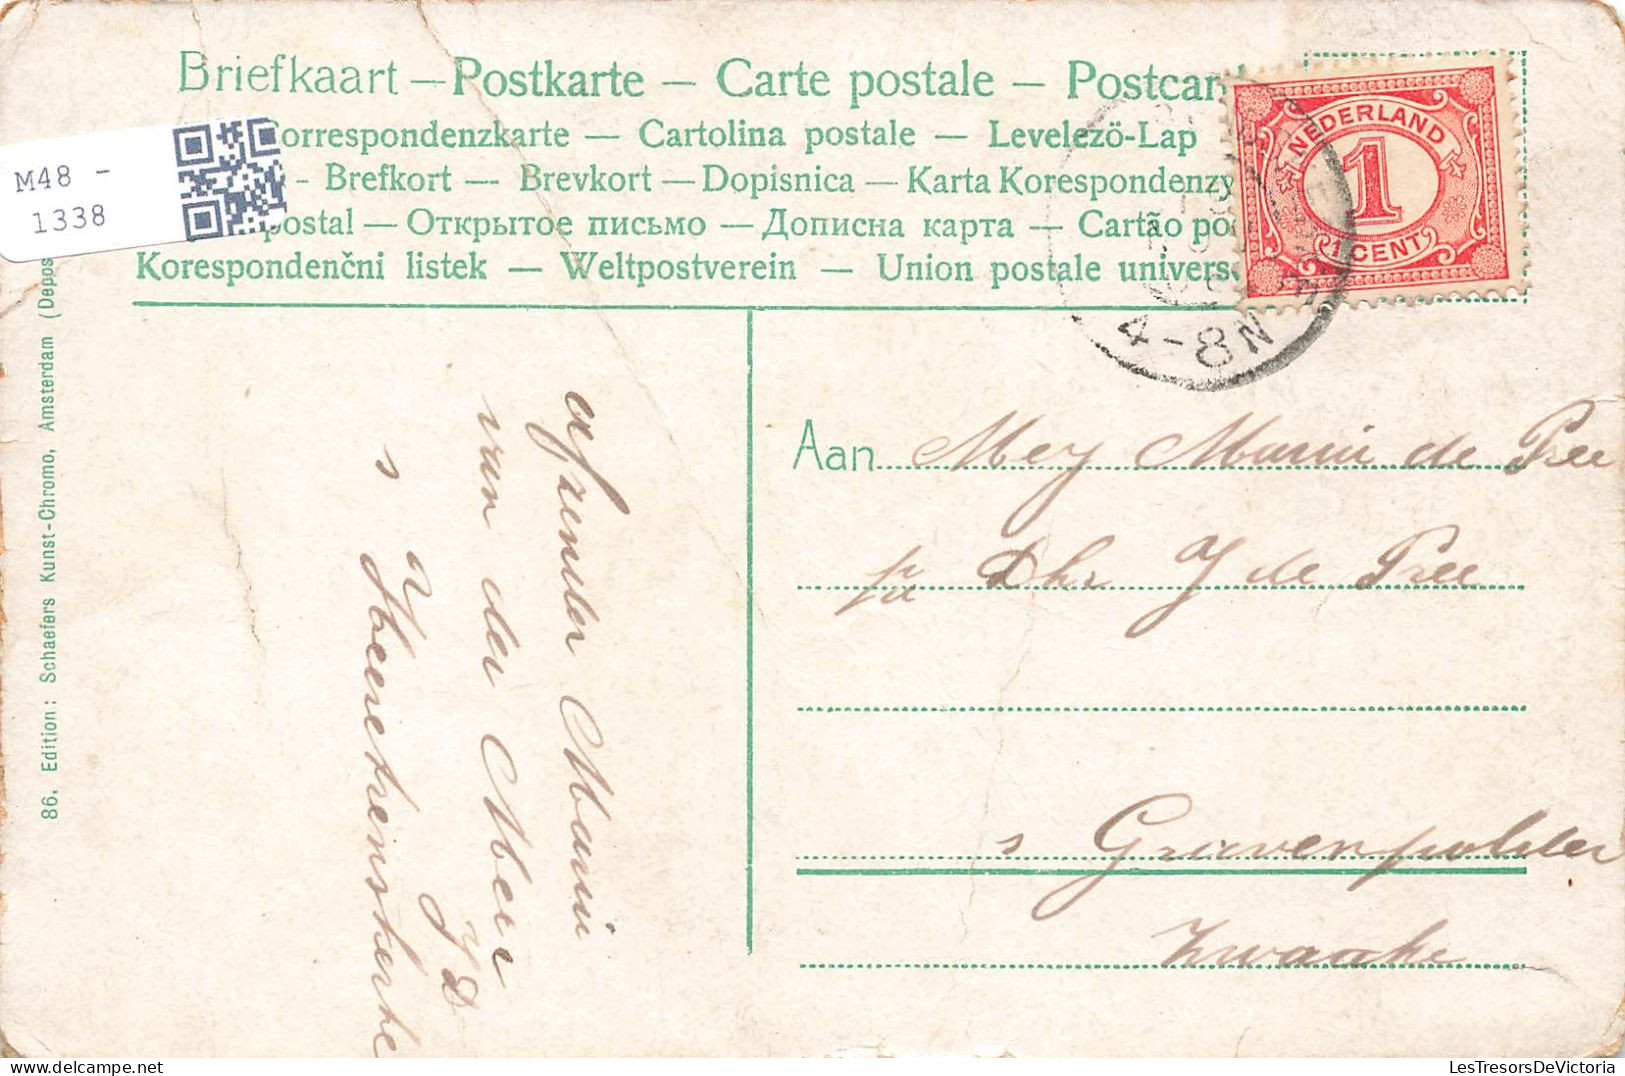 Briefkaart — Postkarte — Carte postale — Postcar
Correspondenzkarte — Cartolina postale — Levelező-Lap
- Brefkort — Brevkort — Dopisnica — Karta Korespondenzy
postal — Открытое письмо — Дописна карта — Cartão po
Korespondenčni listek — Weltpostverein — Union postale univers
M48 -
1338
NEDERLAND
1
1 CENT
4-8N
86. Edition: Schaefers Kunst-Chromo, Amsterdam (Depos
afzender Marie
van der Meer
J D
s Heerenhoek
Aan Mej Marie de Pree
p/a Dhr J de Pree
s Gravenpolder
Zwaake
LesTresorsDeVictoria